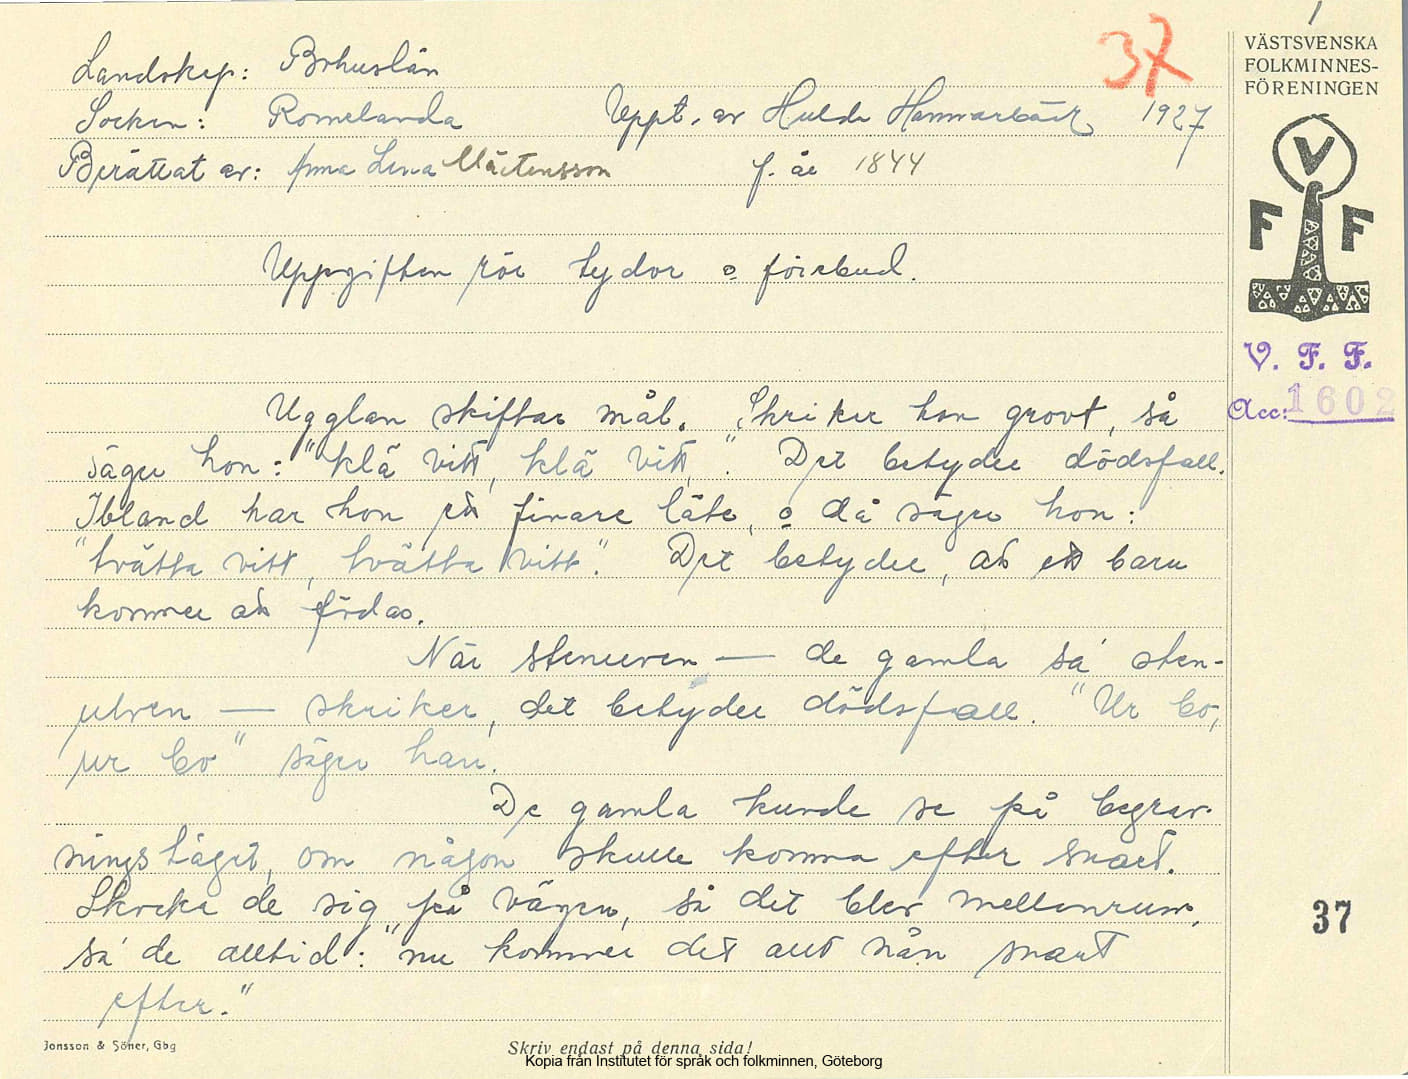 37
Landskap: Bohuslän
VÄSTSVENSKA
FOLKMINNES-
FÖRENINGEN
Socken: Romelanda Uppt. av Hulda Hammarbäck 1927
Berättat av: Anna Lena Mårtensson f. år 1844
V
F F
Uppgiften rör tydor o förebud.
V. F. F.
Acc: 1602
Ugglan skiftar mål. Skriker hon grovt, så
säger hon: "klä vitt, klä vitt". Det betyder dödsfall.
Ibland har hon ett finare läte, o då säger hon:
"tvätta vitt, tvätta vitt". Det betyder, att ett barn
kommer att födas.
När stenuven — de gamla sa' sten-
ulven — skriker, det betyder dödsfall. "Ur bo,
ur bo" säger han.
De gamla kunde se på begrav-
ningståget, om någon skulle komma efter snart.
Skocka de sig på vägen, så det blev mellanrum,
sa' de alltid: "nu kommer det allt nån snart
efter."
37
Jonsson & Söner, Gbg
Skriv endast på denna sida!
Kopia från Institutet för språk och folkminnen, Göteborg